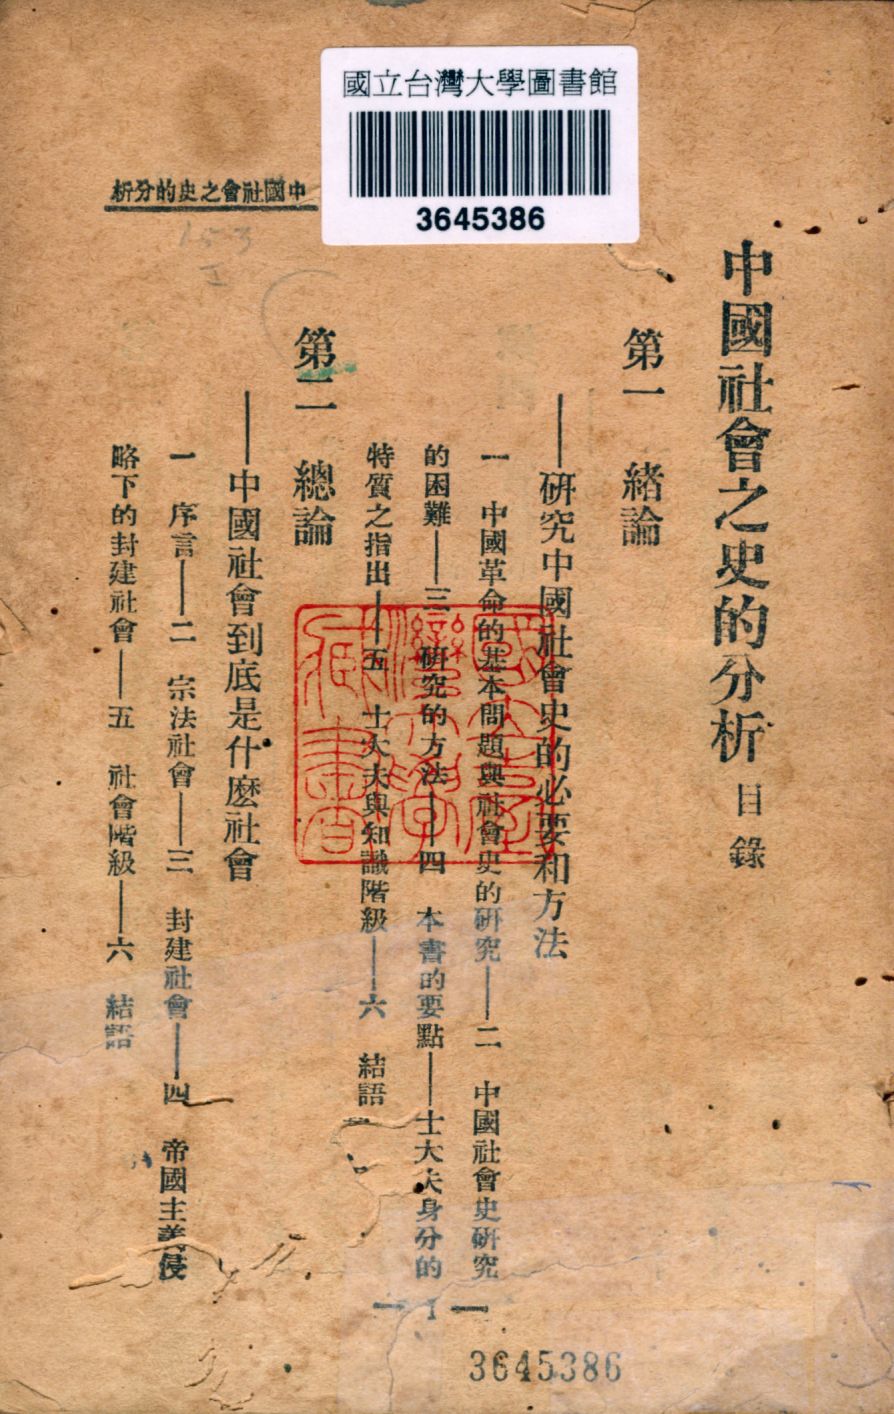 國立台灣大學圖書館
3645386
中國社會之史的分析
153
I
中國社會之史的分析 目錄
第一 緒論
——研究中國社會史的必要和方法
一 中國革命的基本問題與社會史的研究——二 中國社會史研究
的困難——三 研究的方法——四 本書的要點——士大夫身分的
特質之指出——五 士大夫與知識階級——六 結語
第二 總論
——中國社會到底是什麼社會
一 序言——二 宗法社會——三 封建社會——四 帝國主義侵
略下的封建社會——五 社會階級——六 結語
國立臺
灣大學
藏書
— 1 —
3645386